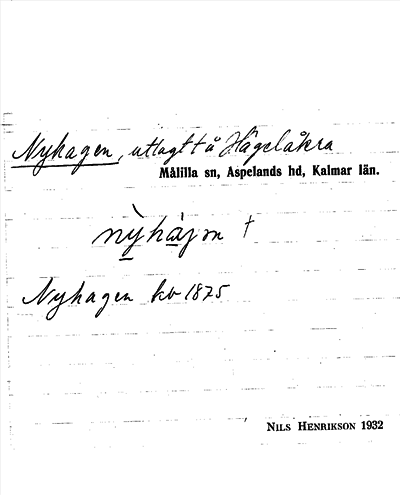 Nyhagen, utlagt t å Hagelåkra
Målilla sn, Aspelands hd, Kalmar län.
nỳhàgən †
Nyhagen kb 1875
NILS HENRIKSON 1932